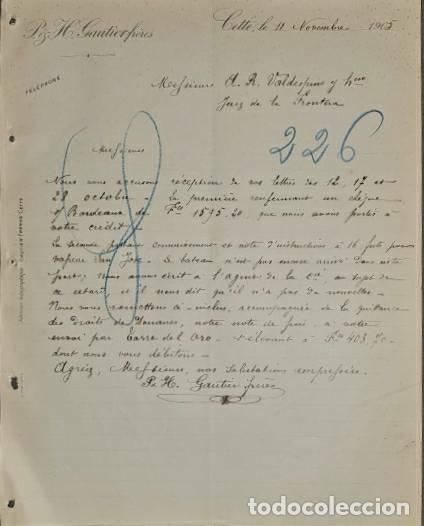 P. & H. Gautier frères
Cette, le 11 Novembre 1905
TÉLÉPHONE
Messieurs A. R. Valdespino y Hno
Jerez de la Frontera
226
Messieurs
Nous vous accusons réception de vos lettres des 12, 17 et
28 octobre la première renfermant un chèque
s/ Bordeaux de Fcs 1595.20, que nous avons portés à
votre crédit
La seconde connaissement et note d'instructions à 16 futs par
vapeur San José. Le bateau n'est pas encore arrivé dans notre
port, nous avons écrit à l'agence de la Cie au sujet de
ce retard et il nous dit qu'il n'a pas de nouvelles.
Nous vous remettons ci-inclus, accompagnée de la quittance
des Droits de Douanes, notre note de frais, à votre
envoi par Torre del Oro. s'élevant à Frs 403.70
dont nous vous débitons.
Agréez, Messieurs, nos salutations empressées.
P. & H. Gautier frères
todocoleccion